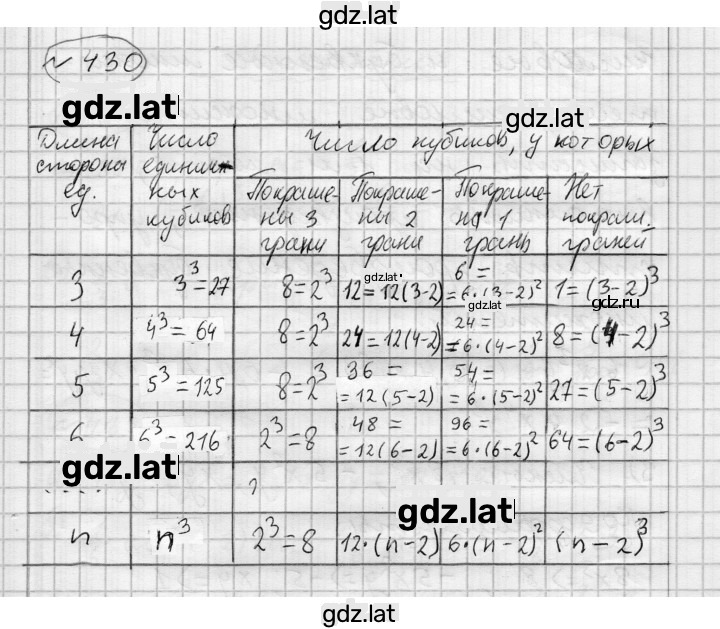 gdz.lat
№ 430
gdz.lat
gdz.lat
Длина стороны ед.
Число единичных кубиков
Число кубиков, у которых
Покрашены 3 грани
Покрашены 2 грани
Покрашена 1 грань
Нет покраш. граней
3 3³=27 8=2³ 12=12(3-2) 6=6·(3-2)² 1=(3-2)³
gdz.lat
gdz.lat
gdz.ru
4 4³=64 8=2³ 24=12(4-2) 24=6·(4-2)² 8=(4-2)³
5 5³=125 8=2³ 36=12(5-2) 54=6·(5-2)² 27=(5-2)³
6³=216 2³=8 48=12(6-2) 96=6·(6-2)² 64=(6-2)³
gdz.lat
....
gdz.lat
n n³ 2³=8 12·(n-2) 6·(n-2)² (n-2)³
gdz.lat